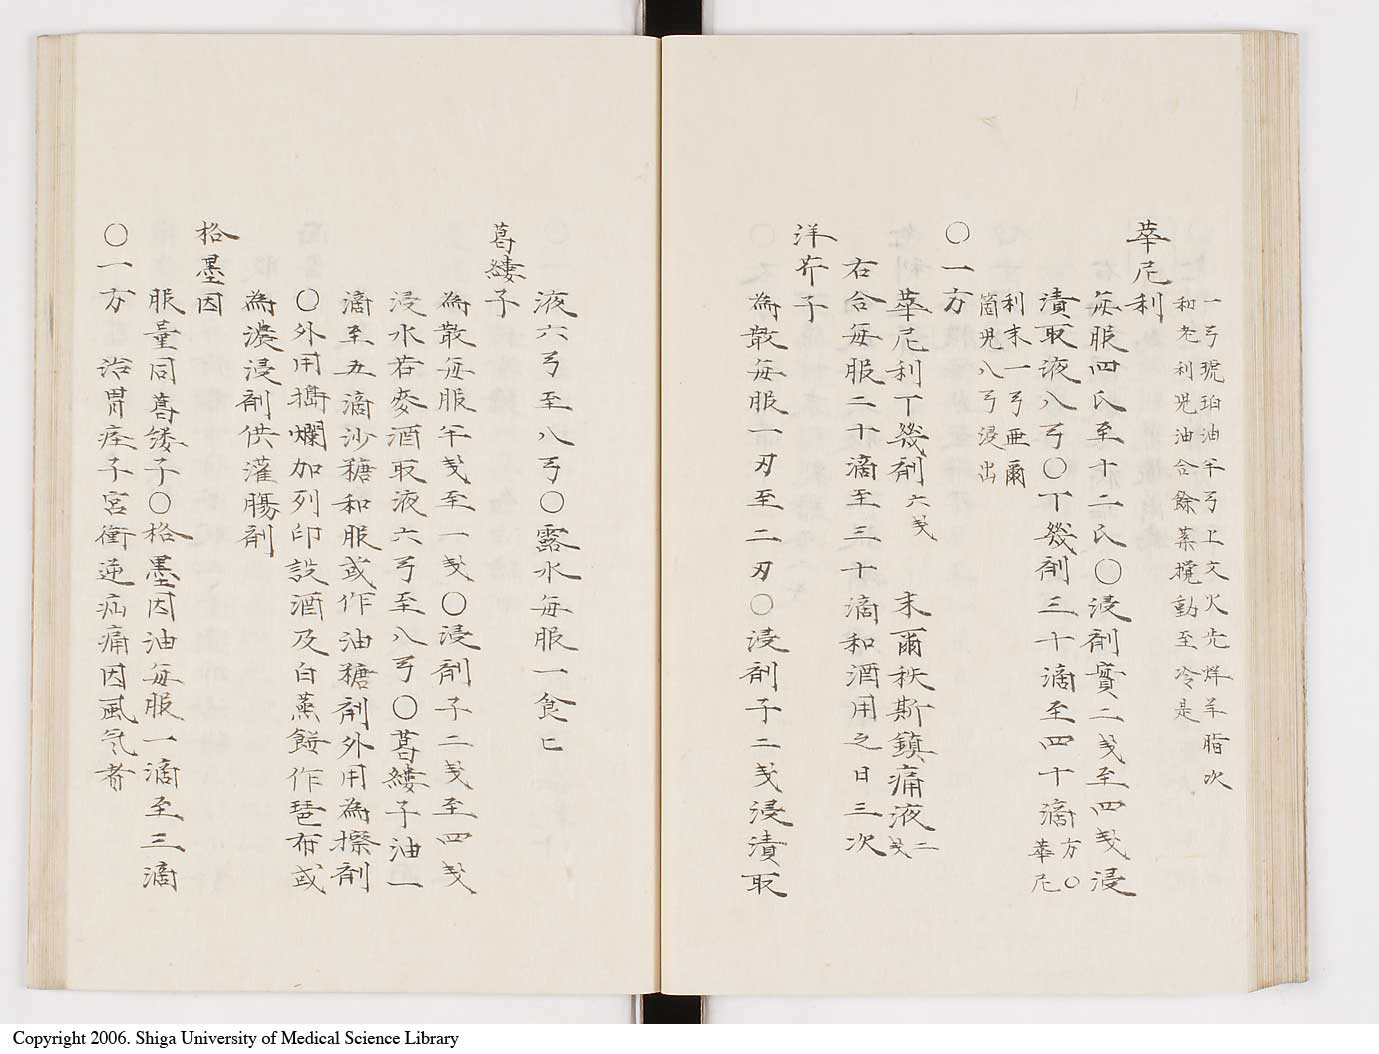 一弓琥珀油半弓上文火先烊羊脂次
和老利児油合餘薬攪動至冷是
華尼利
毎服四氏至十二氏〇浸剤實二戔至四戔浸
漬取液八弓〇丁幾剤三十滴至四十滴 方〇華尼
利末一弓亜爾
箇児八弓浸出
〇一方
華尼利丁幾剤 六戔 末爾秩斯鎮痛液 二戔
右合毎服二十滴至三十滴和酒用之日三次
洋芥子
為散毎服一刃至二刃〇浸剤子二戔浸漬取
液六弓至八弓〇露水毎服一食匕
葛縷子
為散毎服半戔至一戔〇浸剤子二戔至四戔
浸水若麥酒取液六弓至八弓〇葛縷子油一
滴至五滴沙糖和服或作油糖剤外用為擦剤
〇外用搗爛加列印設酒及白蒸餅作琶布或
為濃浸剤供灌腸剤
格墨因
服量同葛縷子〇格墨因油毎服一滴至三滴
〇一方 治胃痙子宮衝逆疝痛因風気者
Copyright 2006. Shiga University of Medical Science Library